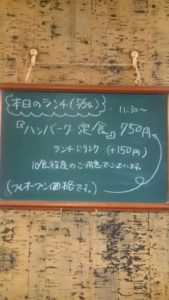 本日のランチ(5/24)
11:30〜
『ハンバーグ定食』750円
ランチドリンク (+150円)
10食程度のご用意でございます。
(プレオープン価格です。)